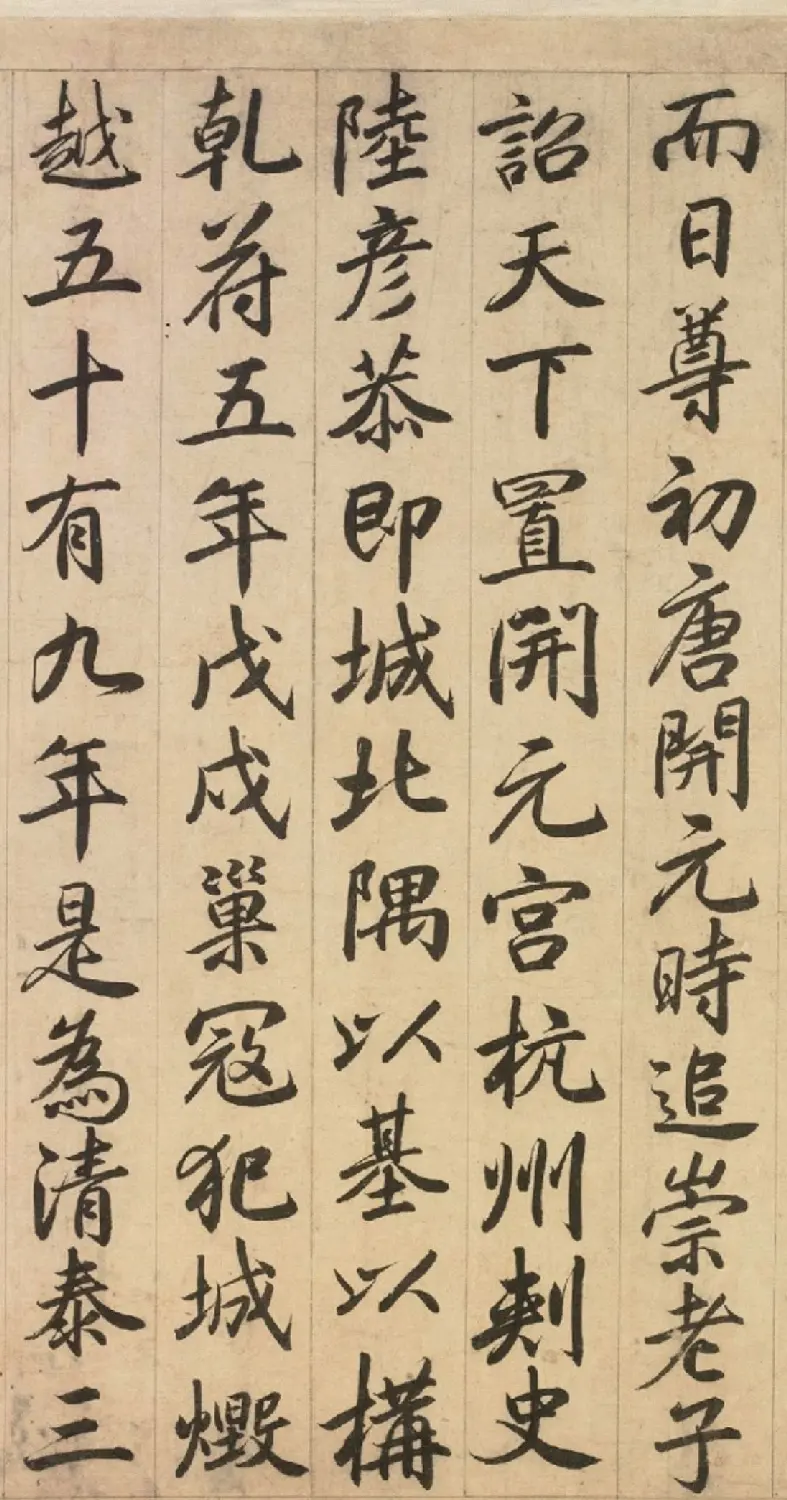 而日尊初唐開元時追崇老子
詔天下置開元宮杭州刺史
陸彥恭即城北隅以基以構
乾符五年戊戌巢寇犯城燬
越五十有九年是為清泰三